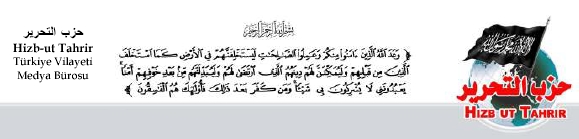 حزب التحرير
Hizb-ut Tahrir
Türkiye Vilayeti
Medya Bürosu
بسم الله الرحمن الرحيم
﴿ وَعَدَ اللَّهُ الَّذِينَ ءَامَنُوا مِنكُمْ وَعَمِلُوا الصَّالِحَاتِ لَيَسْتَخْلِفَنَّهُمْ فِي الْأَرْضِ كَمَا اسْتَخْلَفَ
الَّذِينَ مِن قَبْلِهِمْ وَلَيُمَكِّنَنَّ لَهُمْ دِينَهُمُ الَّذِي ارْتَضَى لَهُمْ وَلَيُبَدِّلَنَّهُم مِّن بَعْدِ خَوْفِهِمْ أَمْنًا
يَعْبُدُونَنِي لَا يُشْرِكُونَ بِي شَيْئًا وَمَن كَفَرَ بَعْدَ ذَلِكَ فَأُولَئِكَ هُمُ الْفَاسِقُونَ ﴾
حزب التحرير
HIZB UT TAHRIR